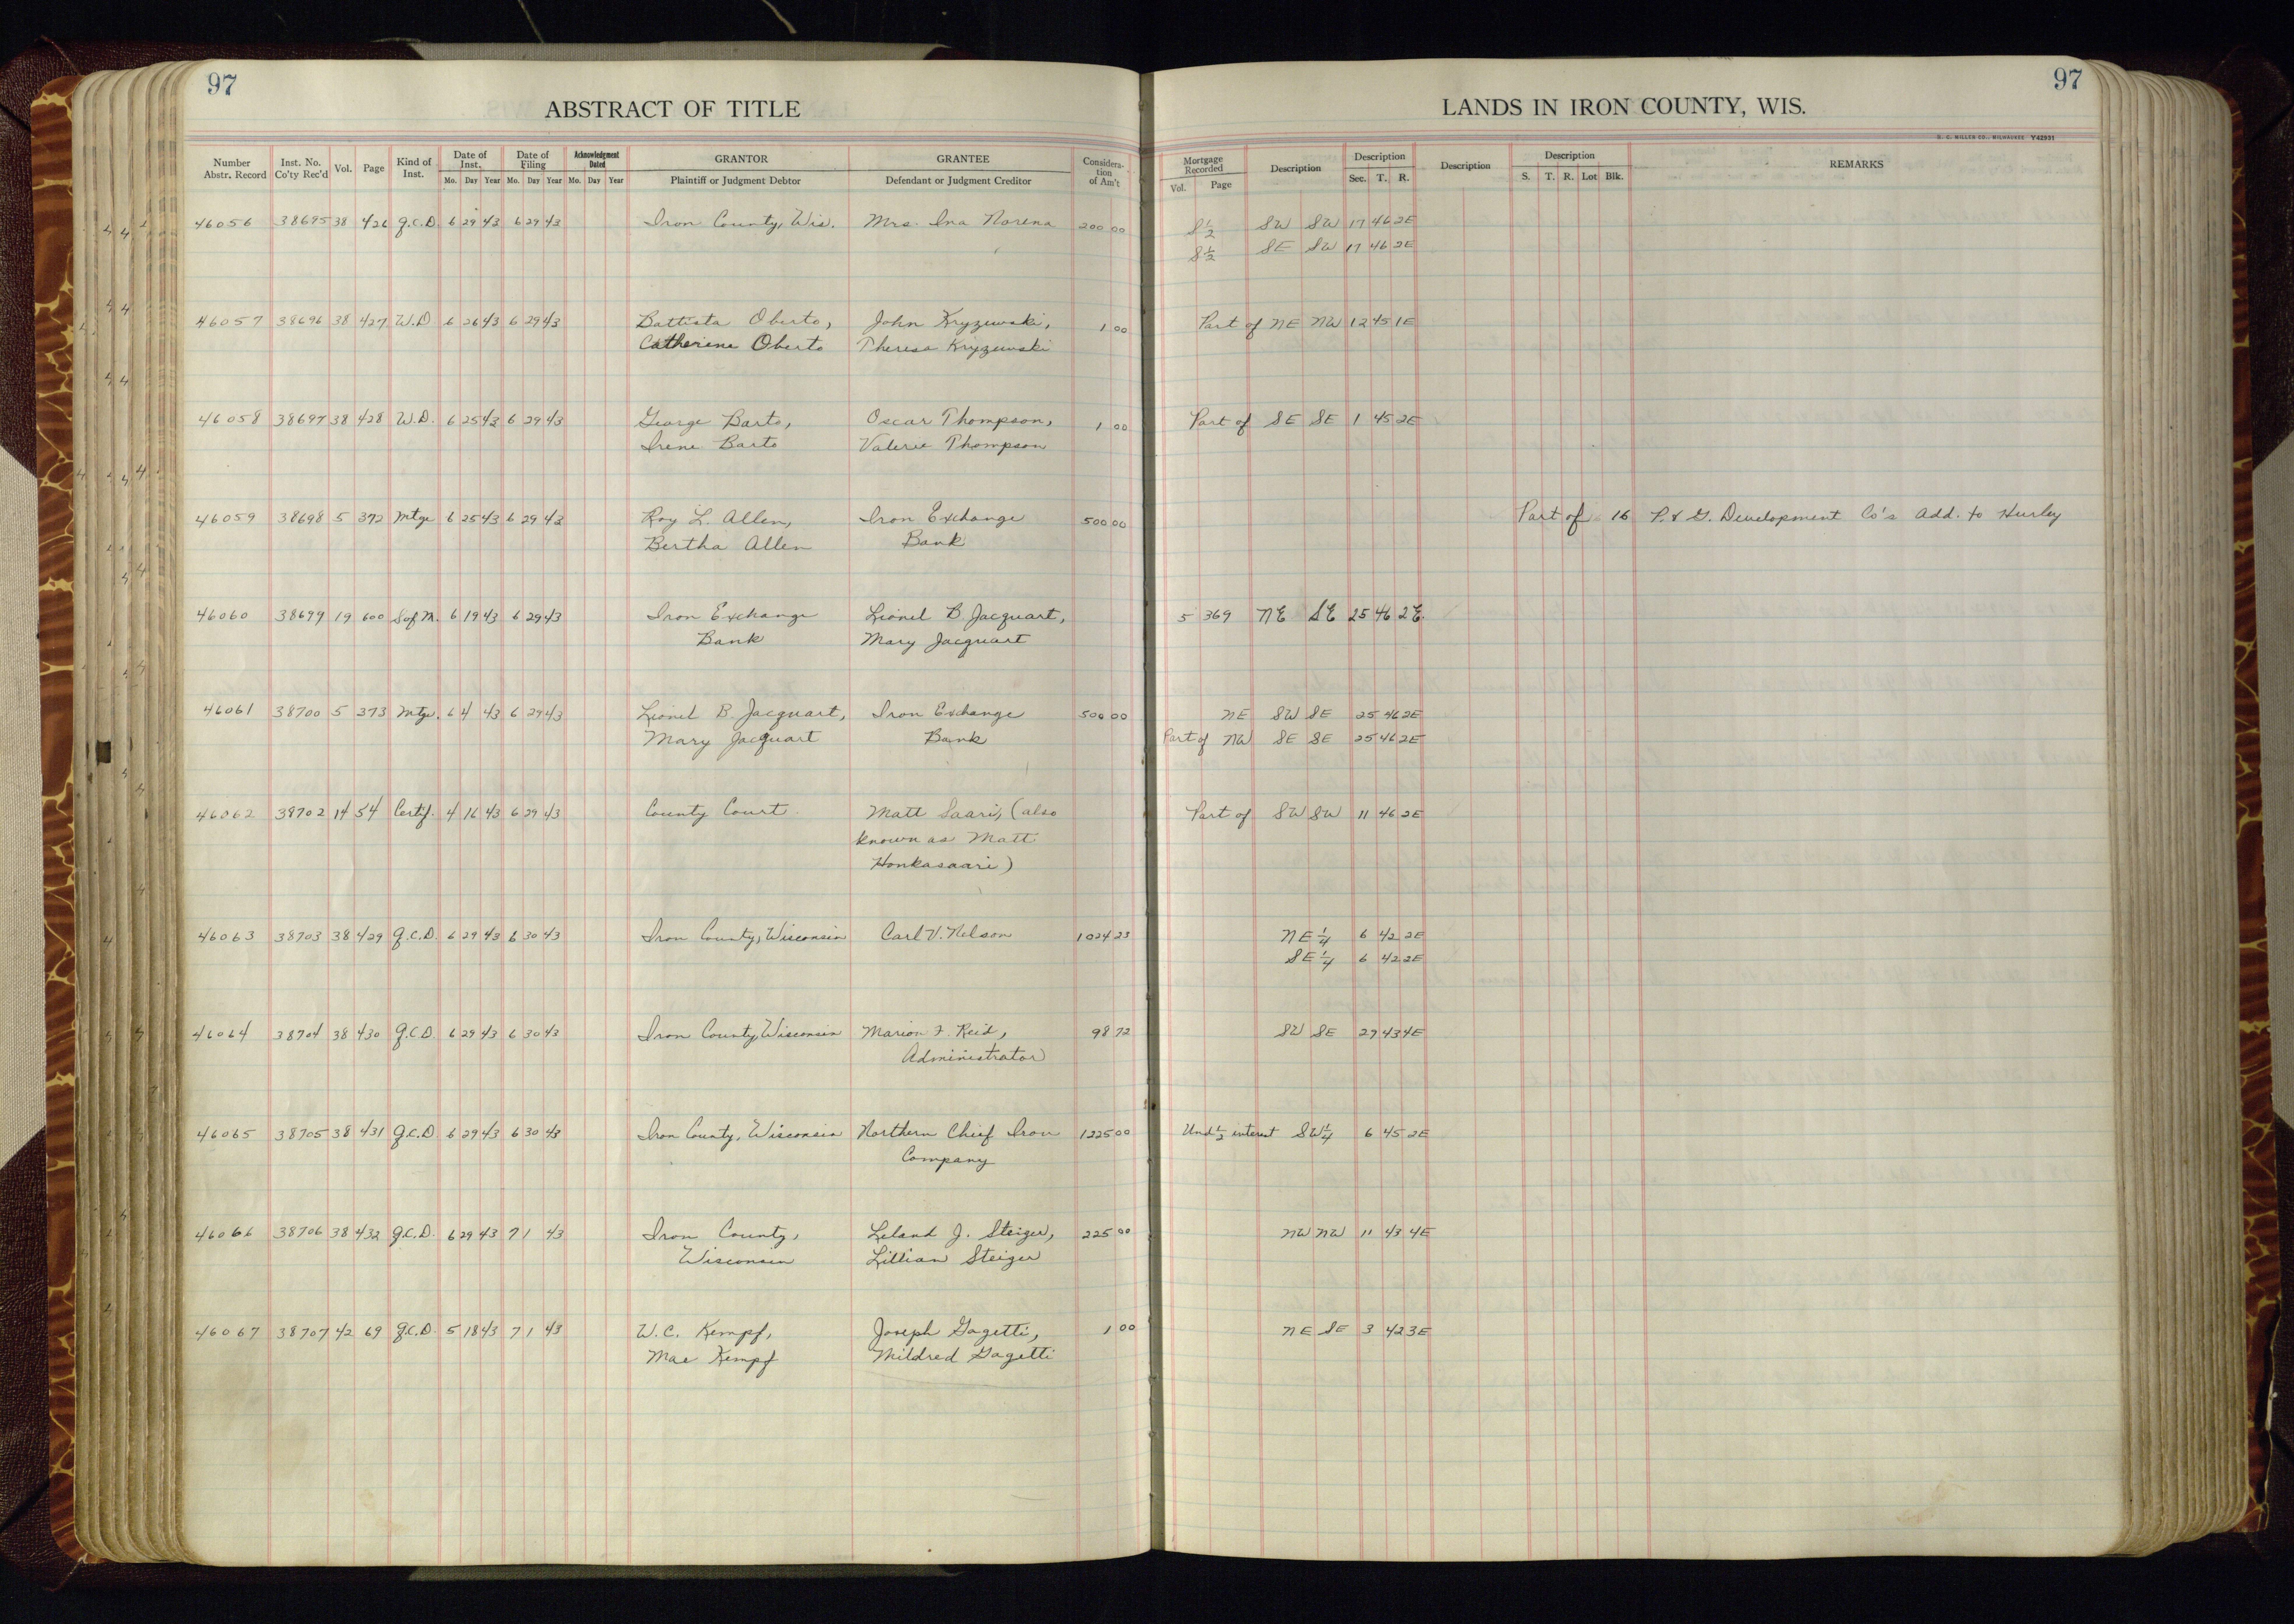 97
ABSTRACT OF TITLE
Number Abstr. Record Inst. No. Co'ty Rec'd Vol. Page Kind of Inst. Date of Inst. Date of Filing Acknowledgment Dated GRANTOR GRANTEE Considera- tion of Am't
Mo. Day Year Mo. Day Year Mo. Day Year Plaintiff or Judgment Debtor Defendant or Judgment Creditor
46056 38695 38 426 Q.C.D. 6 29 43 6 29 43 Iron County, Wis. Mrs. Ina Norena 200 00
46057 38696 38 427 W.D. 6 26 43 6 29 43 Battista Oberto, John Kryzewski, 1 00
Catherine Oberto Theresa Kryzewski
46058 38697 38 428 W.D. 6 25 43 6 29 43 George Barto, Oscar Thompson, 1 00
Irene Barto Valerie Thompson
46059 38698 5 372 Mtge 6 25 43 6 29 43 Roy L. Allen, Iron Exchange 500 00
Bertha Allen Bank
46060 38699 19 600 S of M. 6 19 43 6 29 43 Iron Exchange Lionel B Jacquart,
Bank Mary Jacquart
46061 38700 5 373 Mtge. 6 4 43 6 29 43 Lionel B. Jacquart, Iron Exchange 500 00
Mary Jacquart Bank
46062 38702 14 54 Certif. 4 16 43 6 29 43 County Court Matt Saari, (also
known as Matt
Honkasaari)
46063 38703 38 429 Q.C.D. 6 29 43 6 30 43 Iron County, Wisconsin Carl V. Nelson 1024 23
46064 38704 38 430 Q.C.D. 6 29 43 6 30 43 Iron County, Wisconsin Marion F. Reid, 98 72
Administrator
46065 38705 38 431 Q.C.D 6 29 43 6 30 43 Iron County, Wisconsin Northern Chief Iron 1225 00
Company
46066 38706 38 432 Q.C.D. 6 29 43 7 1 43 Iron County, Leland J. Steiger, 225 00
Wisconsin Lillian Steiger
46067 38707 42 69 Q.C.D. 5 18 43 7 1 43 W.C. Kempf, Joseph Gagetti, 1 00
Mae Kempf Mildred Gagetti
97
LANDS IN IRON COUNTY, WIS.
H. C. MILLER CO., MILWAUKEE Y42931
Mortgage Recorded Description Description Description Description REMARKS
Vol. Page Sec. T. R. S. T. R. Lot Blk.
S 1/2 SW SW 17 46 2E
S 1/2 SE SW 17 46 2E
Part of NE NW 12 45 1E
Part of SE SE 1 45 2E
Part of 16 P. & G. Development Co's Add. to Hurley
5 369 NE SE 25 46 2E.
NE SW SE 25 46 2E
Part of NW SE SE 25 46 2E
Part of SW SW 11 46 2E
NE 1/4 6 42 2E
SE 1/4 6 42 2E
SW SE 27 43 4E
Und 1/2 interest SW 1/4 6 45 2E
NW NW 11 43 4E
NE SE 3 42 3E